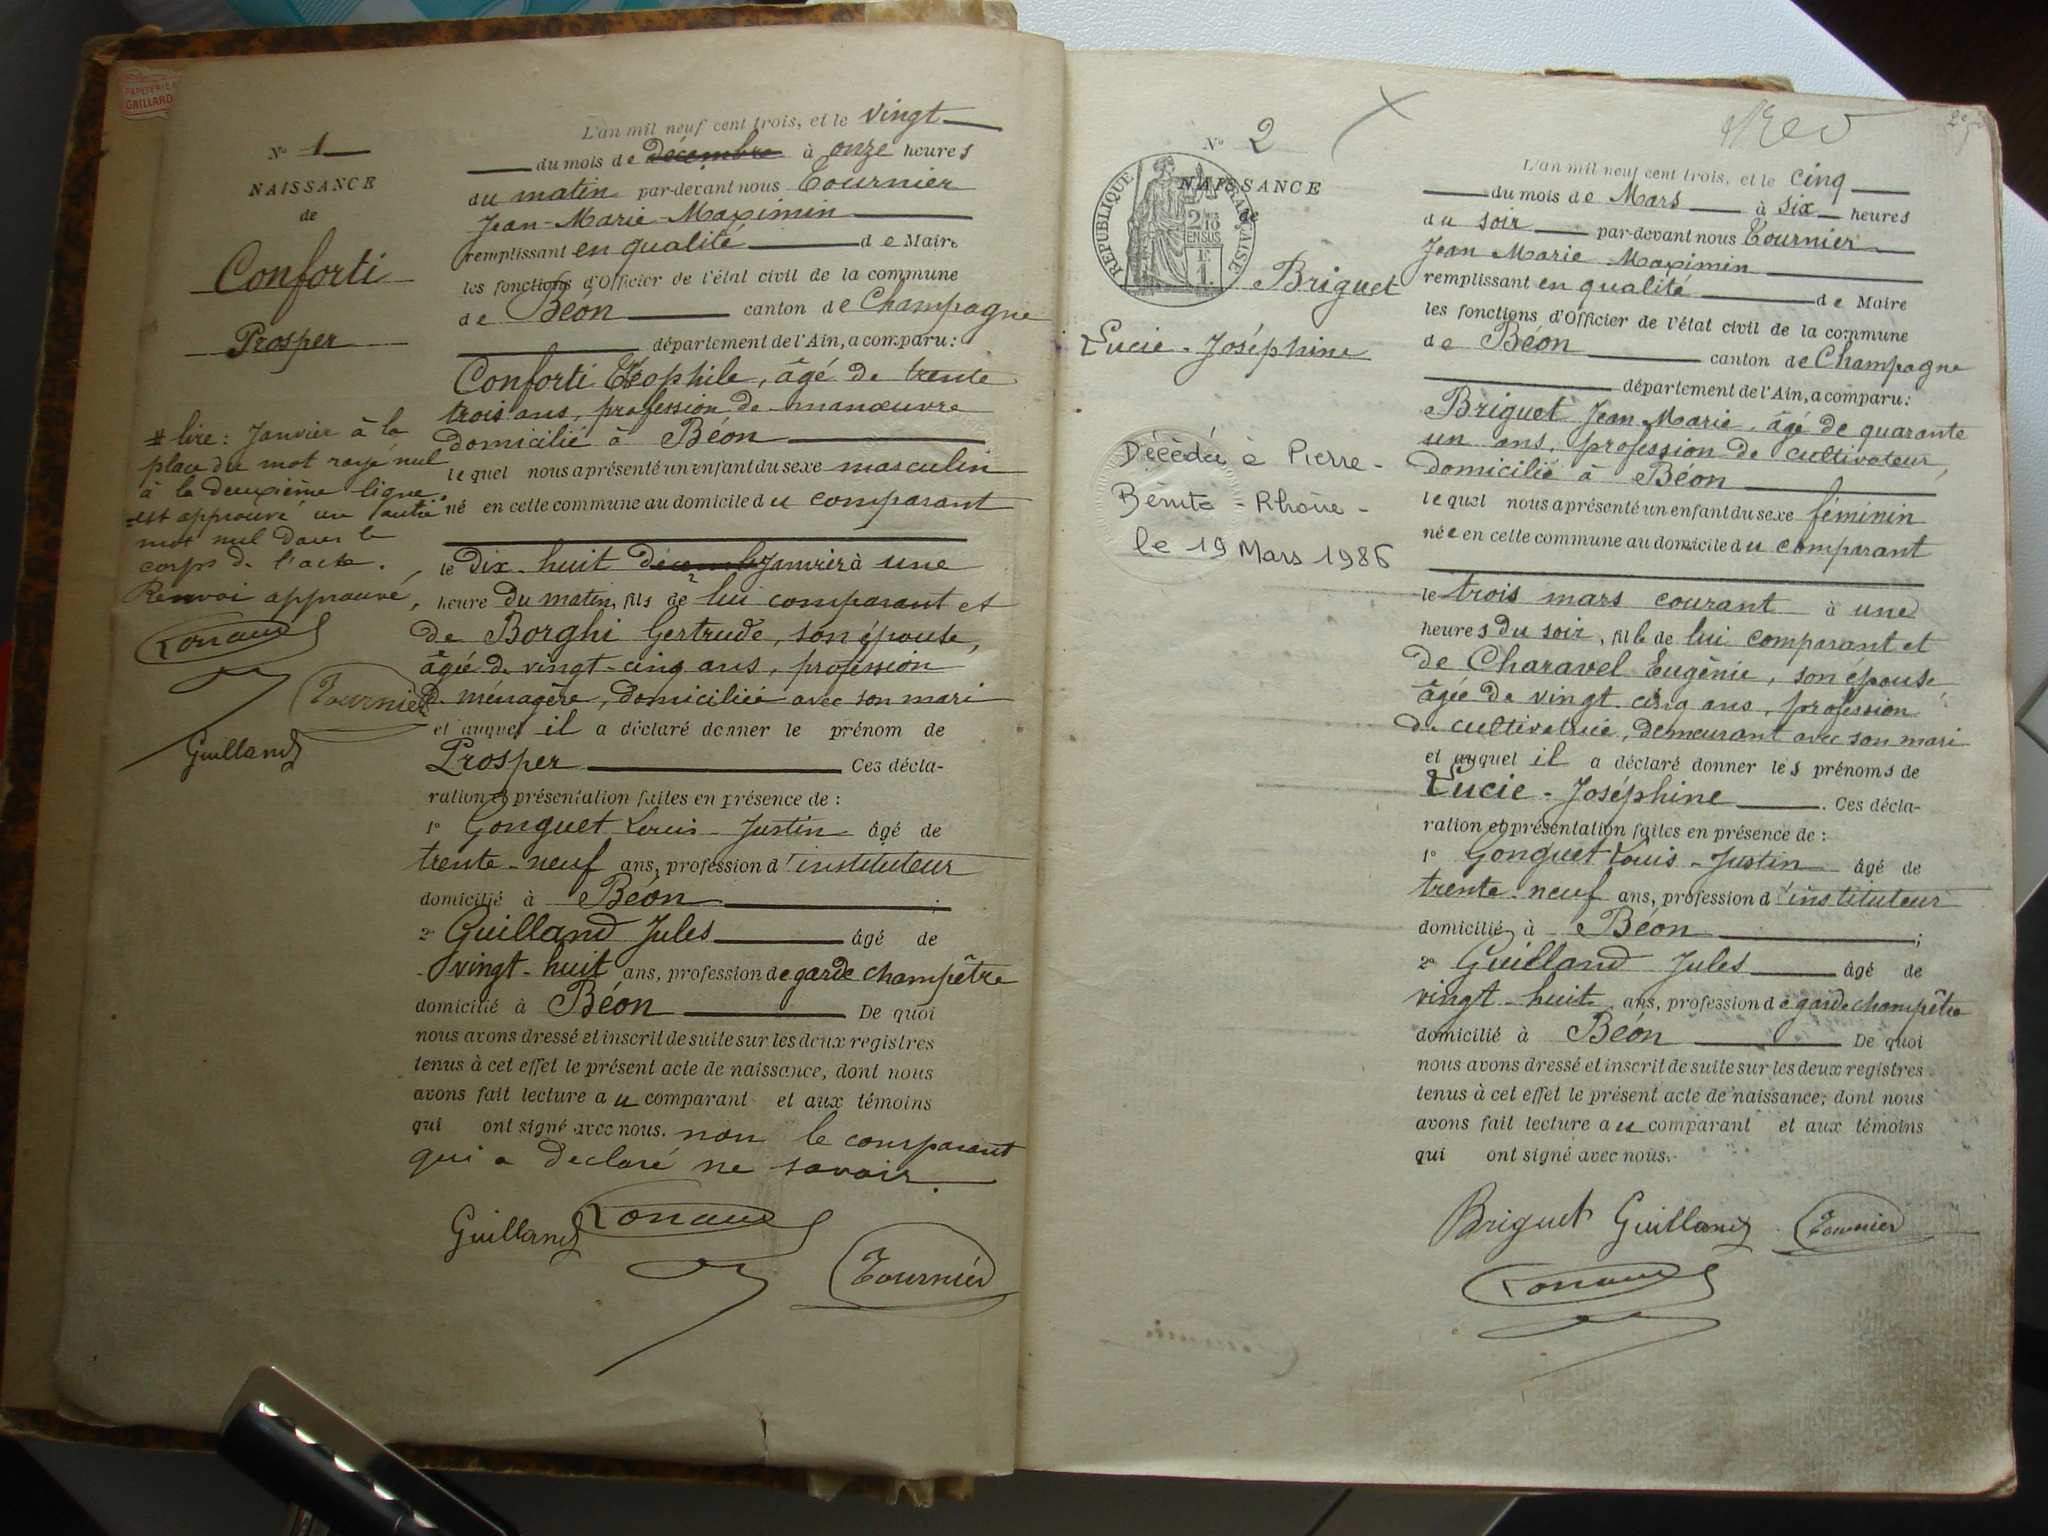 PAPETERIE
GAILLARD
N° 1
NAISSANCE
de
Conforti
Prosper
# lire: Janvier à la
place du mot rayé nul
à la deuxième ligne
est approuvé un autre
mot nul dans le
corps de l'acte.
Renvoi approuvé,
Tournier
Guilland
L'an mil neuf cent trois, et le vingt
du mois de décembre à onze heures
du matin par-devant nous Tournier
Jean-Marie-Maximin
remplissant en qualité de Maire
les fonctions d'Officier de l'état civil de la commune
de Béon canton de Champagne
département de l'Ain, a comparu:
Conforti Théophile, âgé de trente
trois ans, profession de manœuvre
domicilié à Béon
lequel nous a présenté un enfant du sexe masculin
né en cette commune au domicile du comparant
le dix-huit décembre Janvier à une
heure du matin, fils de lui comparant et
de Borghi Gertrude, son épouse,
âgée de vingt-cinq ans, profession
de ménagère, domiciliée avec son mari
et auquel il a déclaré donner le prénom de
Prosper Ces décla-
ration et présentation faites en présence de:
1° Gonguet Louis-Justin âgé de
trente-neuf ans, profession d'instituteur
domicilié à Béon ;
2° Guilland Jules âgé de
vingt-huit ans, profession de garde champêtre
domicilié à Béon De quoi
nous avons dressé et inscrit de suite sur les deux registres
tenus à cet effet le présent acte de naissance, dont nous
avons fait lecture au comparant et aux témoins
qui ont signé avec nous. non le comparant
qui a déclaré ne savoir.
Guilland
Tournier
N° 2
NAISSANCE
de
RÉPUBLIQUE FRANÇAISE
2/10
EN SUS
1F.
Briguet
Lucie-Joséphine
Décédée à Pierre-
Bénite-Rhône-
le 19 Mars 1986
L'an mil neuf cent trois, et le cinq
du mois de Mars à six heures
du soir par-devant nous Tournier
Jean Marie Maximin
remplissant en qualité de Maire
les fonctions d'Officier de l'état civil de la commune
de Béon canton de Champagne
département de l'Ain, a comparu:
Briguet Jean Marie, âgé de quarante
un ans, profession de cultivateur,
domicilié à Béon
lequel nous a présenté un enfant du sexe féminin
née en cette commune au domicile du comparant
le trois mars courant à une
heures du soir, fille de lui comparant et
de Charavel Eugénie, son épouse
âgée de vingt cinq ans, profession
de cultivatrice, demeurant avec son mari
et auquel il a déclaré donner les prénoms de
Lucie-Joséphine. Ces décla-
ration et présentation faites en présence de:
1° Gonguet Louis-Justin âgé de
trente-neuf ans, profession d'instituteur
domicilié à Béon ;
2° Guilland Jules âgé de
vingt-huit ans, profession de garde champêtre
domicilié à Béon De quoi
nous avons dressé et inscrit de suite sur les deux registres
tenus à cet effet le présent acte de naissance, dont nous
avons fait lecture au comparant et aux témoins
qui ont signé avec nous.
Briguet Guilland Tournier